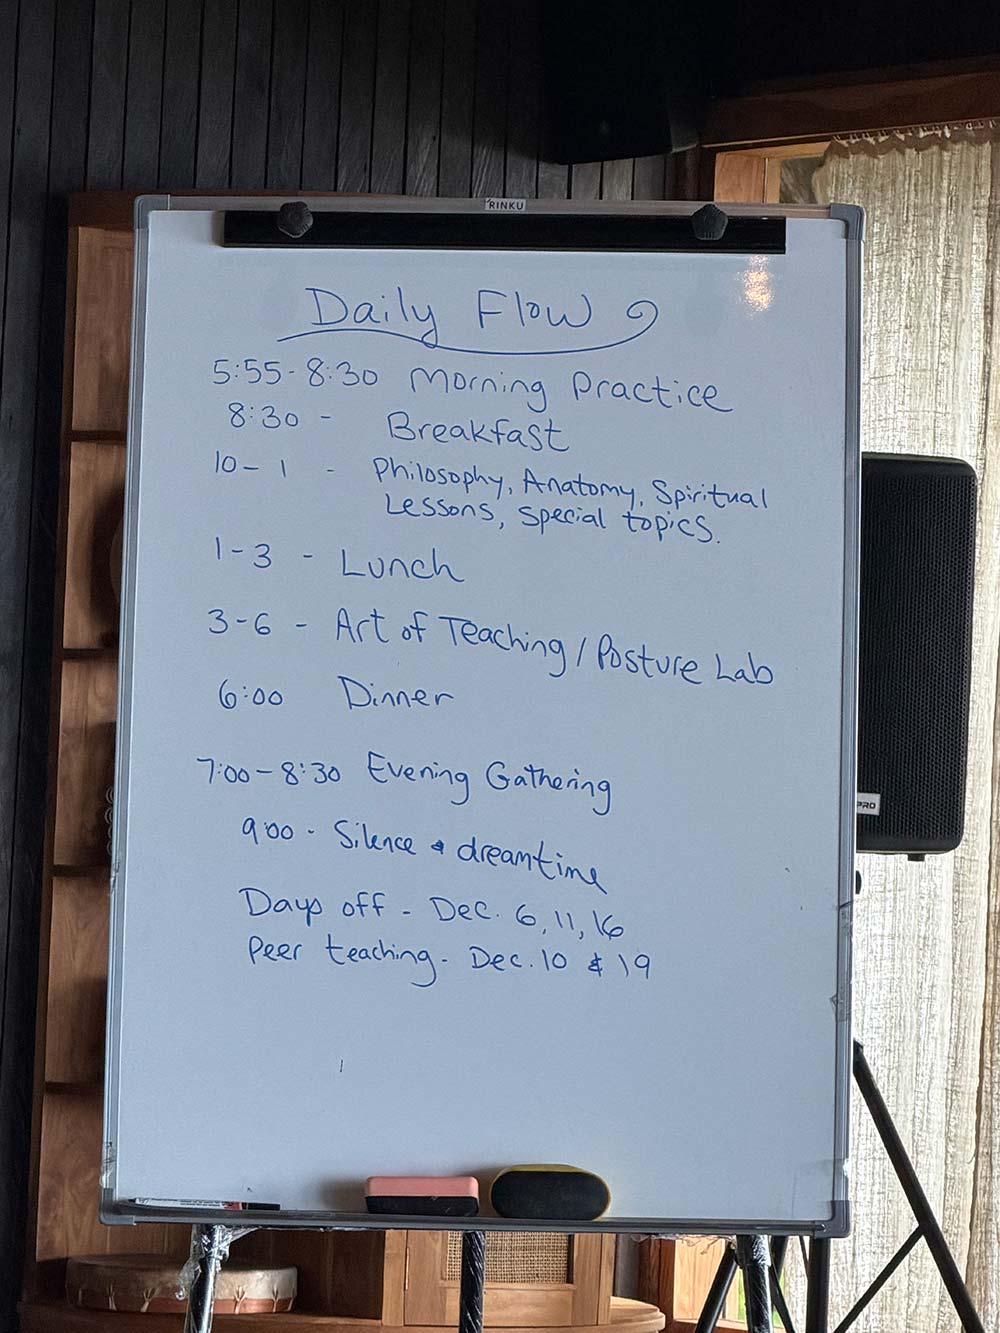 RINKU
Daily Flow
5:55-8:30 Morning Practice
8:30 - Breakfast
10-1 - Philosophy, Anatomy, Spiritual
Lessons, special topics.
1-3 - Lunch
3-6 - Art of Teaching / Posture Lab
6:00 Dinner
7:00-8:30 Evening Gathering
9:00 - Silence & dreamtime
Days off - Dec. 6, 11, 16
Peer teaching - Dec. 10 & 19
PRO